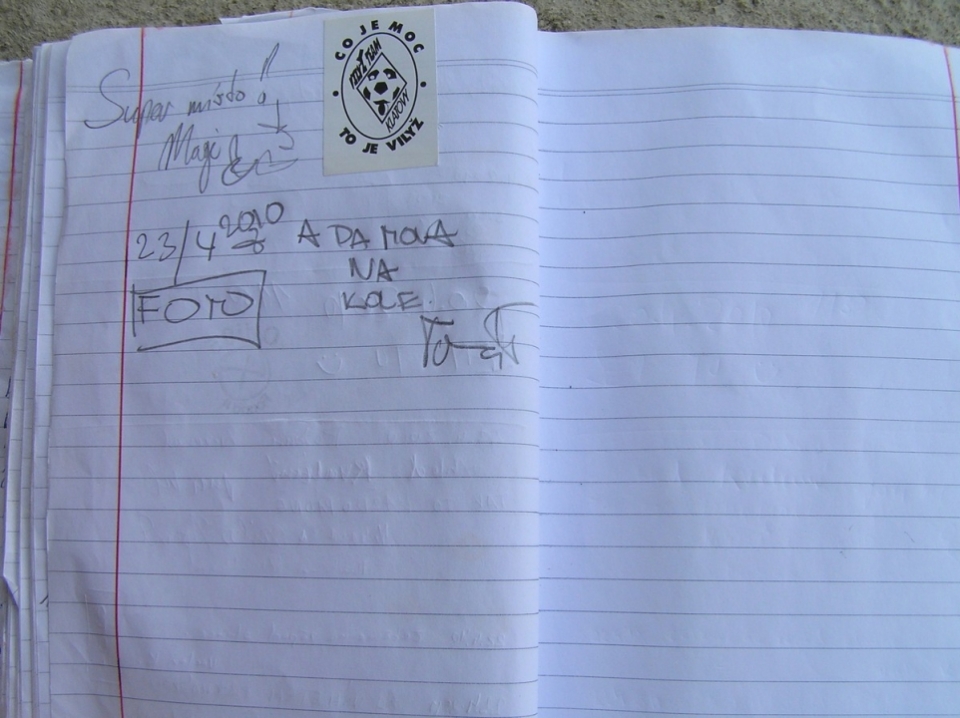 Super místo!!
CO JE MOC
TO JE VILYŽ
KLATOVY
23/4 2010 A DA MOVA
NA
FOTO KOLE.